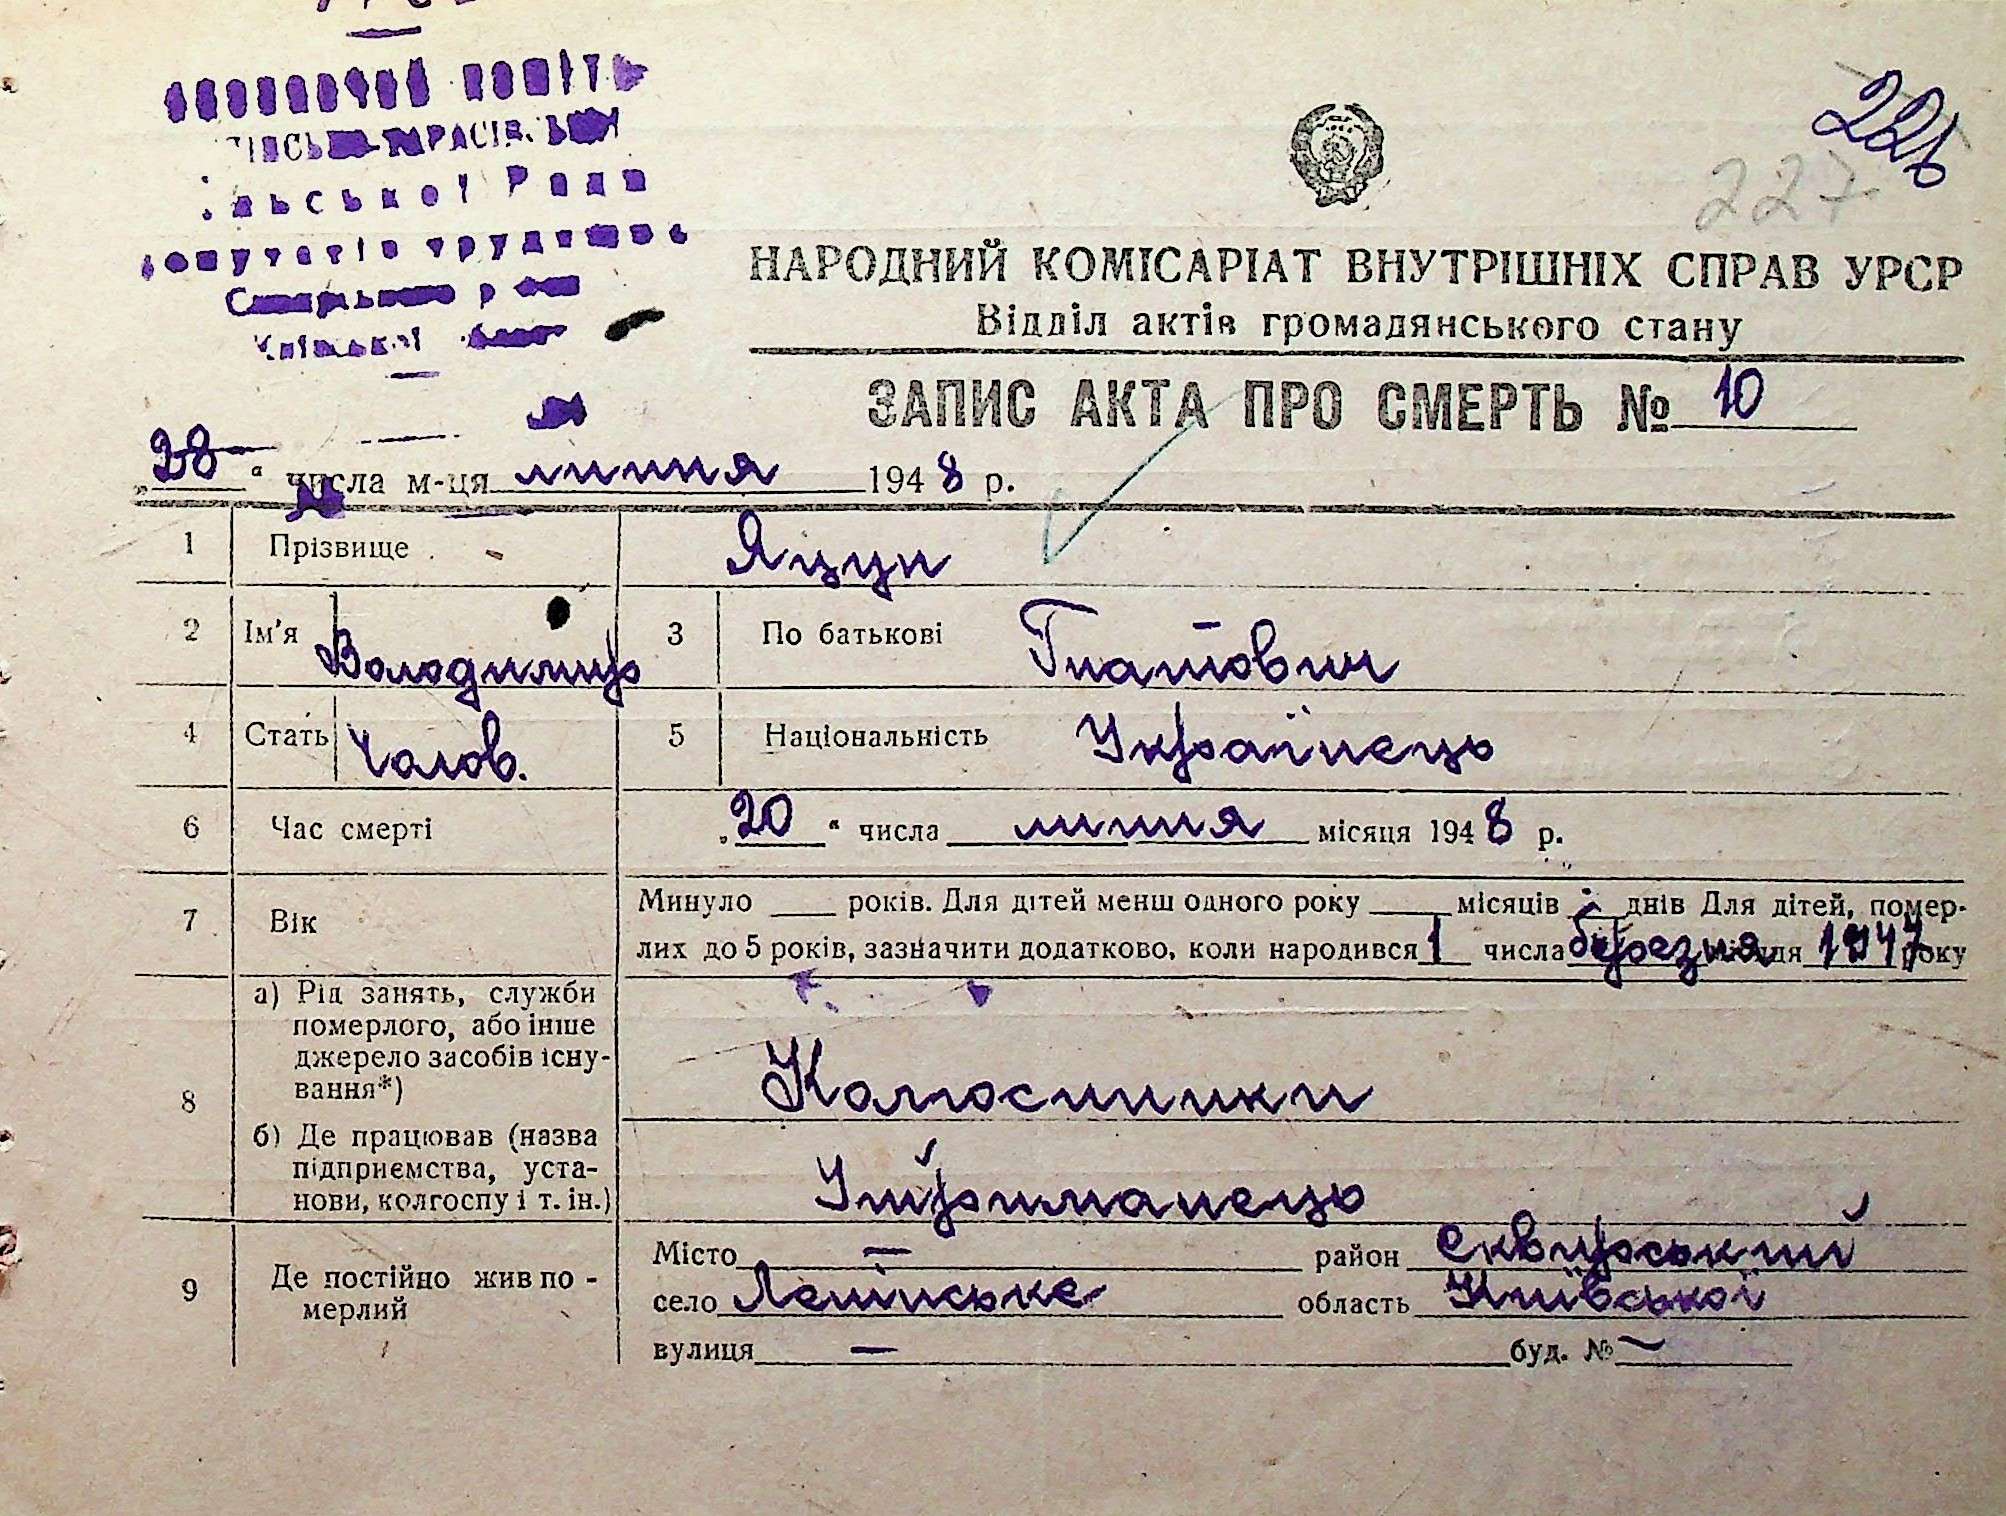 226
227
Виконавчий коміт
сільської Ради
депутатів трудящих
Сквирського р-ну
Київської област
НАРОДНИЙ КОМІСАРІАТ ВНУТРІШНІХ СПРАВ УРСР
Відділ актів громадянського стану
ЗАПИС АКТА ПРО СМЕРТЬ № 10
„28“ числа м-ця липня 1948 р.
1 Прізвище Яцун
2 Ім'я Володимир 3 По батькові Гнатович
4 Стать Чолов. 5 Національність Українець
6 Час смерті „20“ числа липня місяця 1948 р.
7 Вік Минуло ___ років. Для дітей менш одного року ___ місяців - днів Для дітей, помер-
лих до 5 років, зазначити додатково, коли народився 1 числа березня м-ця 1947 року
8 а) Рід занять, служби
померлого, або інше
джерело засобів існу-
вання*)
Колгоспники
б) Де працював (назва
підприємства, уста-
нови, колгоспу і т. ін.)
Утриманець
9 Де постійно жив по-
мерлий
Місто — район Сквирський
село Ленінське область Київської
вулиця — буд. № —